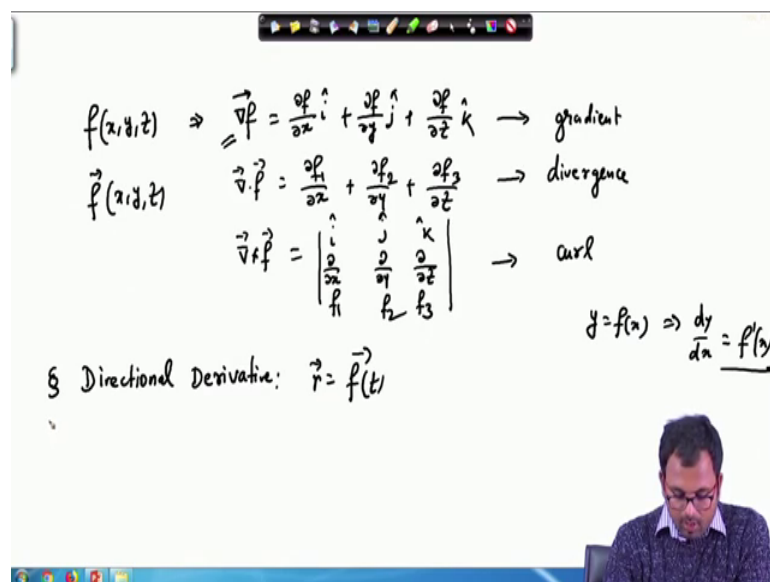 f(x,y,z) ⇒ \vec{∇}f = ∂f/∂x \hat{i} + ∂f/∂y \hat{j} + ∂f/∂z \hat{k} → gradient
\vec{f}(x,y,z) \vec{∇}.\vec{f} = ∂f₁/∂x + ∂f₂/∂y + ∂f₃/∂z → divergence
\vec{∇}×\vec{f} = | \hat{i} \hat{j} \hat{k} ; ∂/∂x ∂/∂y ∂/∂z ; f₁ f₂ f₃ | → curl
y = f(x) ⇒ dy/dx = f'(x)
§ Directional Derivative: \vec{r} = \vec{f}(t)